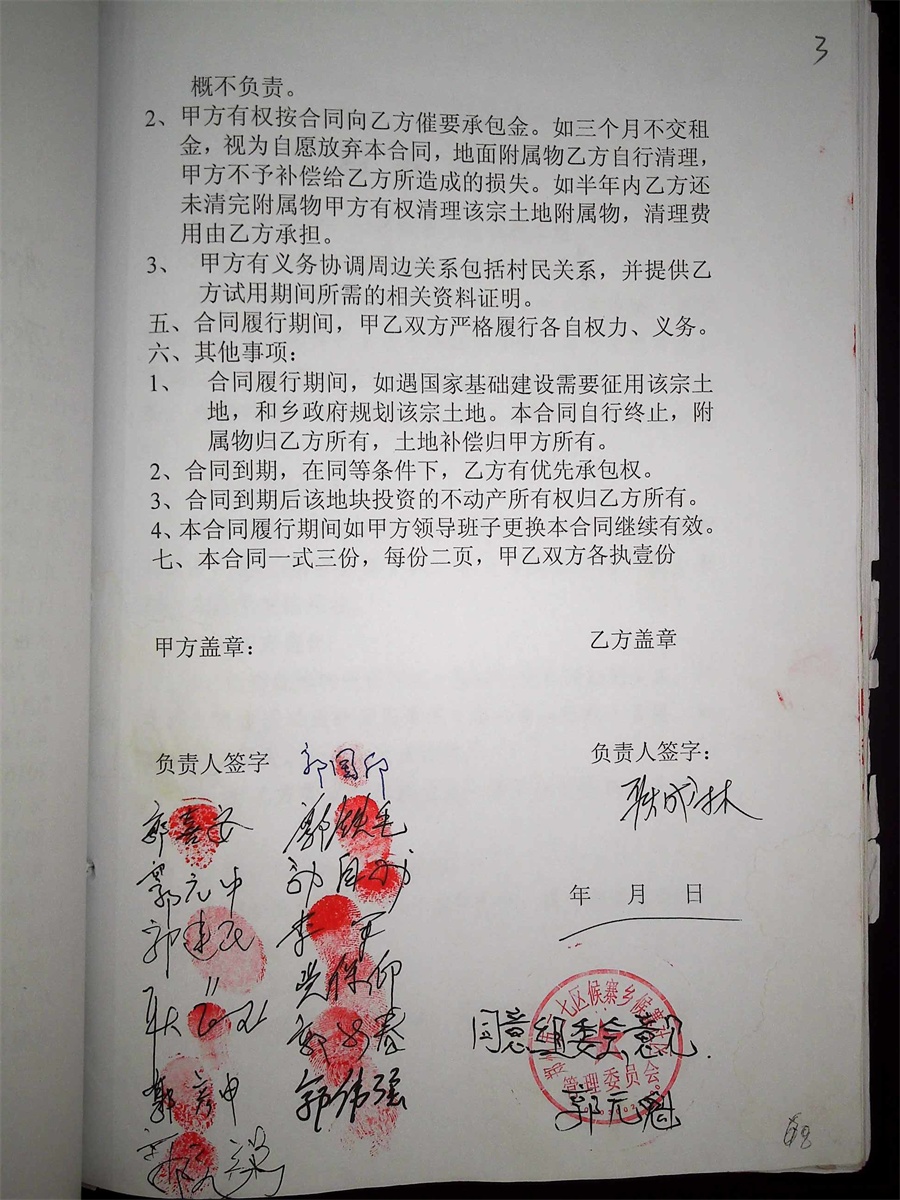 3
概不负责。
2、甲方有权按合同向乙方催要承包金。如三个月不交租
金，视为自愿放弃本合同，地面附属物乙方自行清理，
甲方不予补偿给乙方所造成的损失。如半年内乙方还
未清完附属物甲方有权清理该宗土地附属物，清理费
用由乙方承担。
3、 甲方有义务协调周边关系包括村民关系，并提供乙
方试用期间所需的相关资料证明。
五、合同履行期间，甲乙双方严格履行各自权力、义务。
六、其他事项：
1、 合同履行期间，如遇国家基础建设需要征用该宗土
地，和乡政府规划该宗土地。本合同自行终止，附
属物归乙方所有，土地补偿归甲方所有。
2、合同到期，在同等条件下，乙方有优先承包权。
3、合同到期后该地块投资的不动产所有权归乙方所有。
4、本合同履行期间如甲方领导班子更换本合同继续有效。
七、本合同一式三份，每份二页，甲乙双方各执壹份
甲方盖章： 乙方盖章
负责人签字 郭国卿 负责人签字：
耿成林
郭喜安
郭元中
郭建民
李军
郭伟强
年 月 日
七区候寨乡候
同意组委会意见.
管理委员会
郭元魁
68